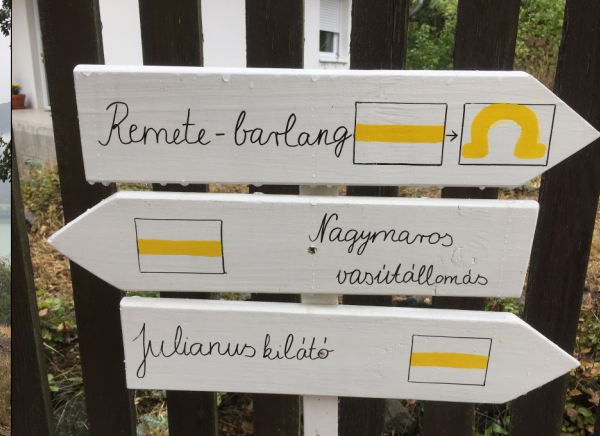 Remete-barlang
Nagymaros
vasútállomás
Julianus kilátó